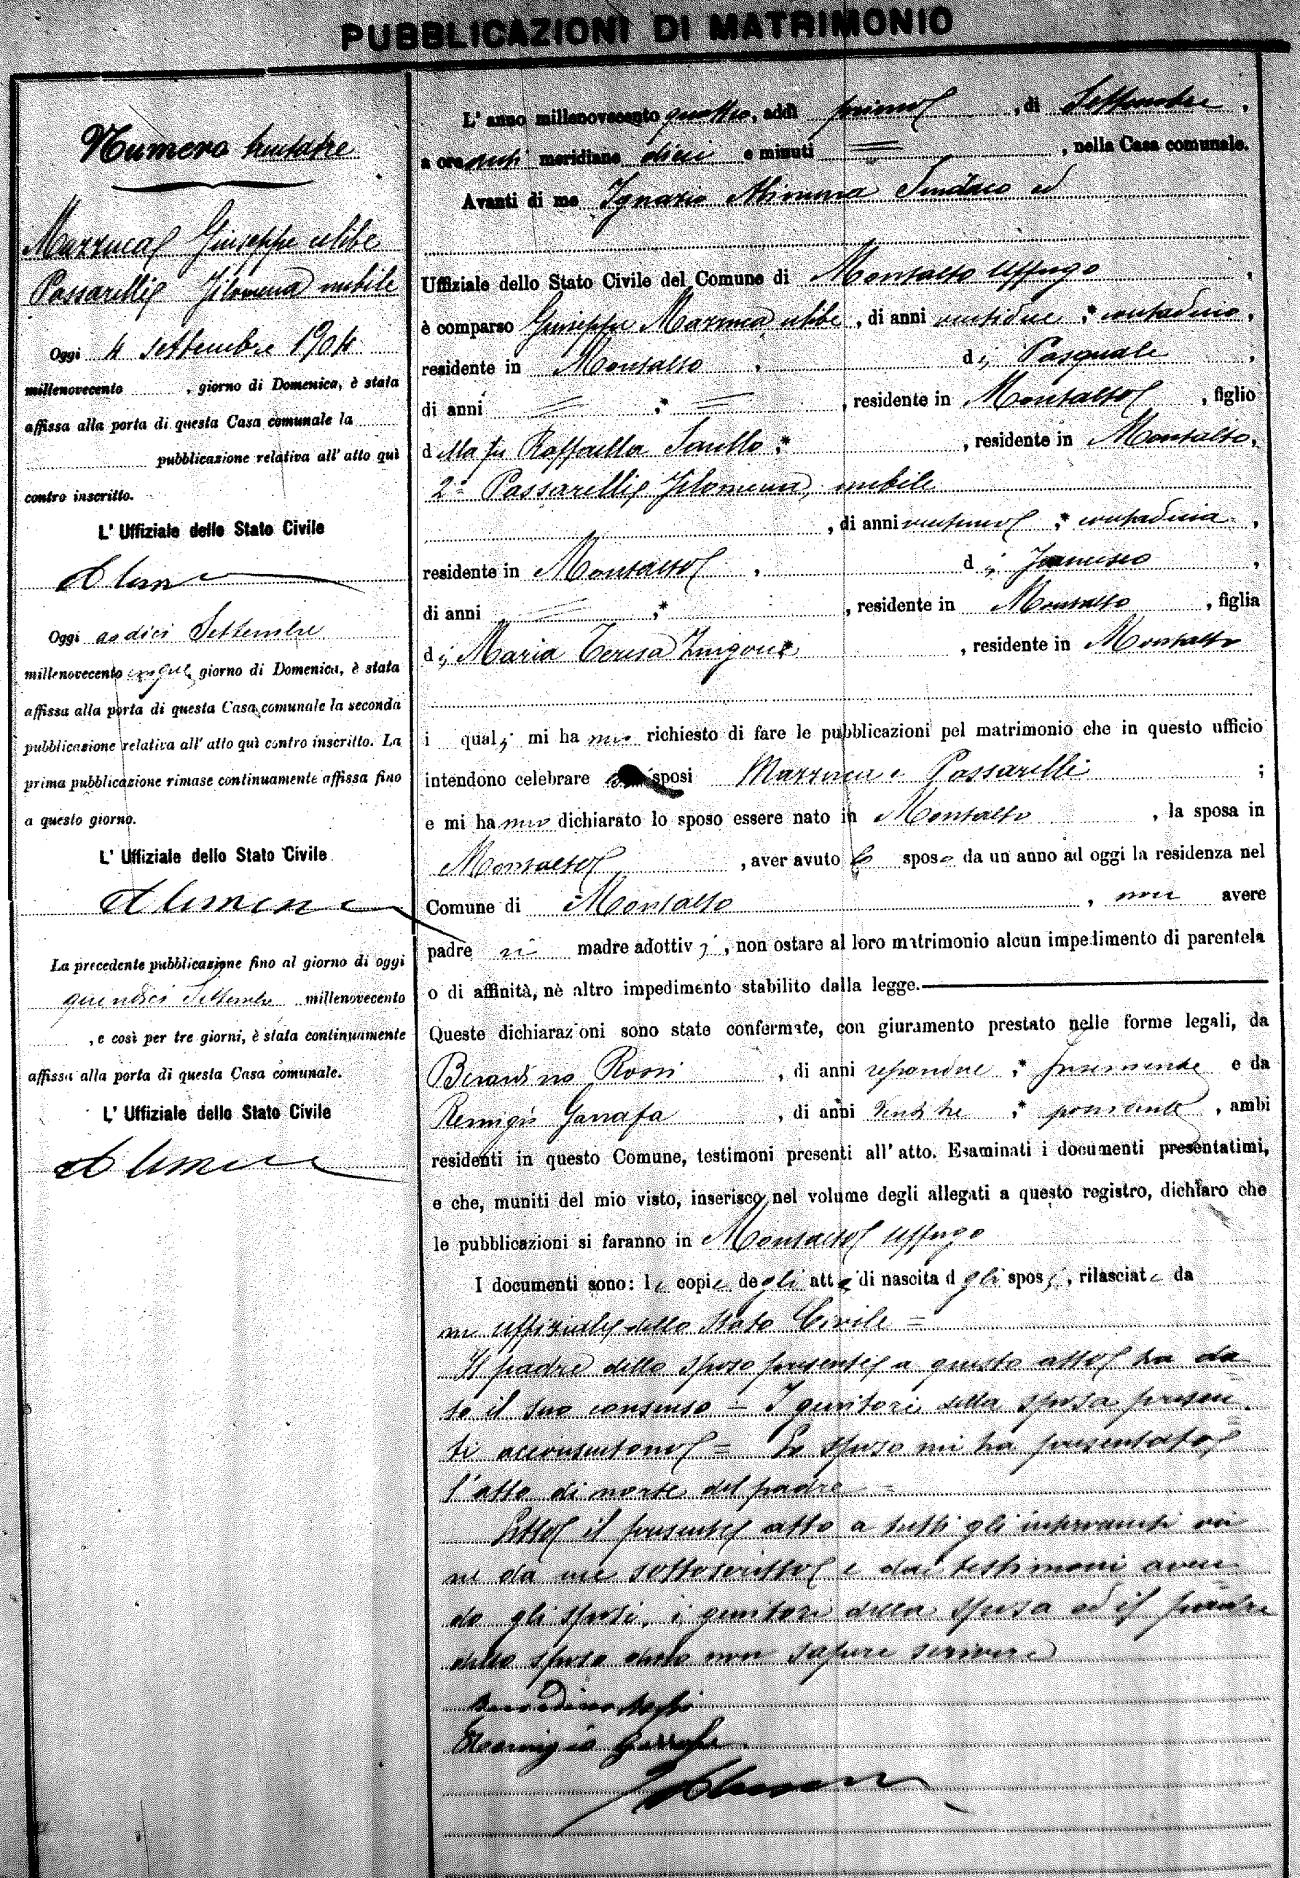 PUBBLICAZIONI DI MATRIMONIO
Numero trentatre
Mazzuca Giuseppe celibe
Passarelli Filomena nubile
Oggi 4 settembre 1904
millenovecento , giorno di Domenica, è stata
affissa alla porta di questa Casa comunale la
pubblicazione relativa all' atto quì
contro inscritto.
L' Uffiziale dello Stato Civile
Oggi undici Settembre
millenovecento giorno di Domenica, è stata
affissa alla porta di questa Casa comunale la seconda
pubblicazione relativa all' atto quì contro inscritto. La
prima pubblicazione rimase continuamente affissa fino
a questo giorno.
L' Uffiziale dello Stato Civile
La precedente pubblicazione fino al giorno di oggi
quindici Settembre millenovecento
, e così per tre giorni, è stata continuamente
affissa alla porta di questa Casa comunale.
L' Uffiziale dello Stato Civile
L' anno millenovecento quattro, addì primo , di Settembre ,
a ore anti meridiane dieci e minuti = , nella Casa comunale.
Avanti di me Ignazio Alimena Sindaco ed
Uffiziale dello Stato Civile del Comune di Montalto Uffugo ,
è comparso Giuseppe Mazzuca celibe , di anni ventidue , contadino ,
residente in Montalto , di Pasquale ,
di anni = , = , residente in Montalto , figlio
della fu Raffaella , residente in Montalto ,
2° Passarelli Filomena, nubile
, di anni ventuno , contadina ,
residente in Montalto , di Francesco ,
di anni = , , residente in Montalto , figlia
di Maria Teresa , residente in Montalto
i quali mi hanno richiesto di fare le pubblicazioni pel matrimonio che in questo ufficio
intendono celebrare sposi Mazzuca e Passarelli ;
e mi hanno dichiarato lo sposo essere nato in Montalto , la sposa in
Montalto , aver avuto lo sposo da un anno ad oggi la residenza nel
Comune di Montalto , non avere
padre nè madre adottivi , non ostare al loro matrimonio alcun impedimento di parentela
o di affinità, nè altro impedimento stabilito dalla legge.
Queste dichiarazioni sono state confermate, con giuramento prestato nelle forme legali, da
Berardino Rossi , di anni , e da
Remigio Garrafa , di anni ventitre , possidente , ambi
residenti in questo Comune, testimoni presenti all' atto. Esaminati i documenti presentatimi,
e che, muniti del mio visto, inserisco nel volume degli allegati a questo registro, dichiaro che
le pubblicazioni si faranno in Montalto Uffugo
I documenti sono: le copie degli atti di nascita degli sposi , rilasciate da
me uffiziale dello Stato Civile =
Il padre dello sposo presente a questo atto ha da
to il suo consenso = I genitori della sposa presen
ti acconsentono = Lo sposo mi ha presentato
l'atto di morte del padre =
Letto il presente atto a tutti gli intervenuti vie
ne da me sottoscritto e dai testimoni aven
do gli sposi, i genitori della sposa ed il padre
dello sposo detto non sapere scrivere
Berardino Rossi
Remigio Garrafa